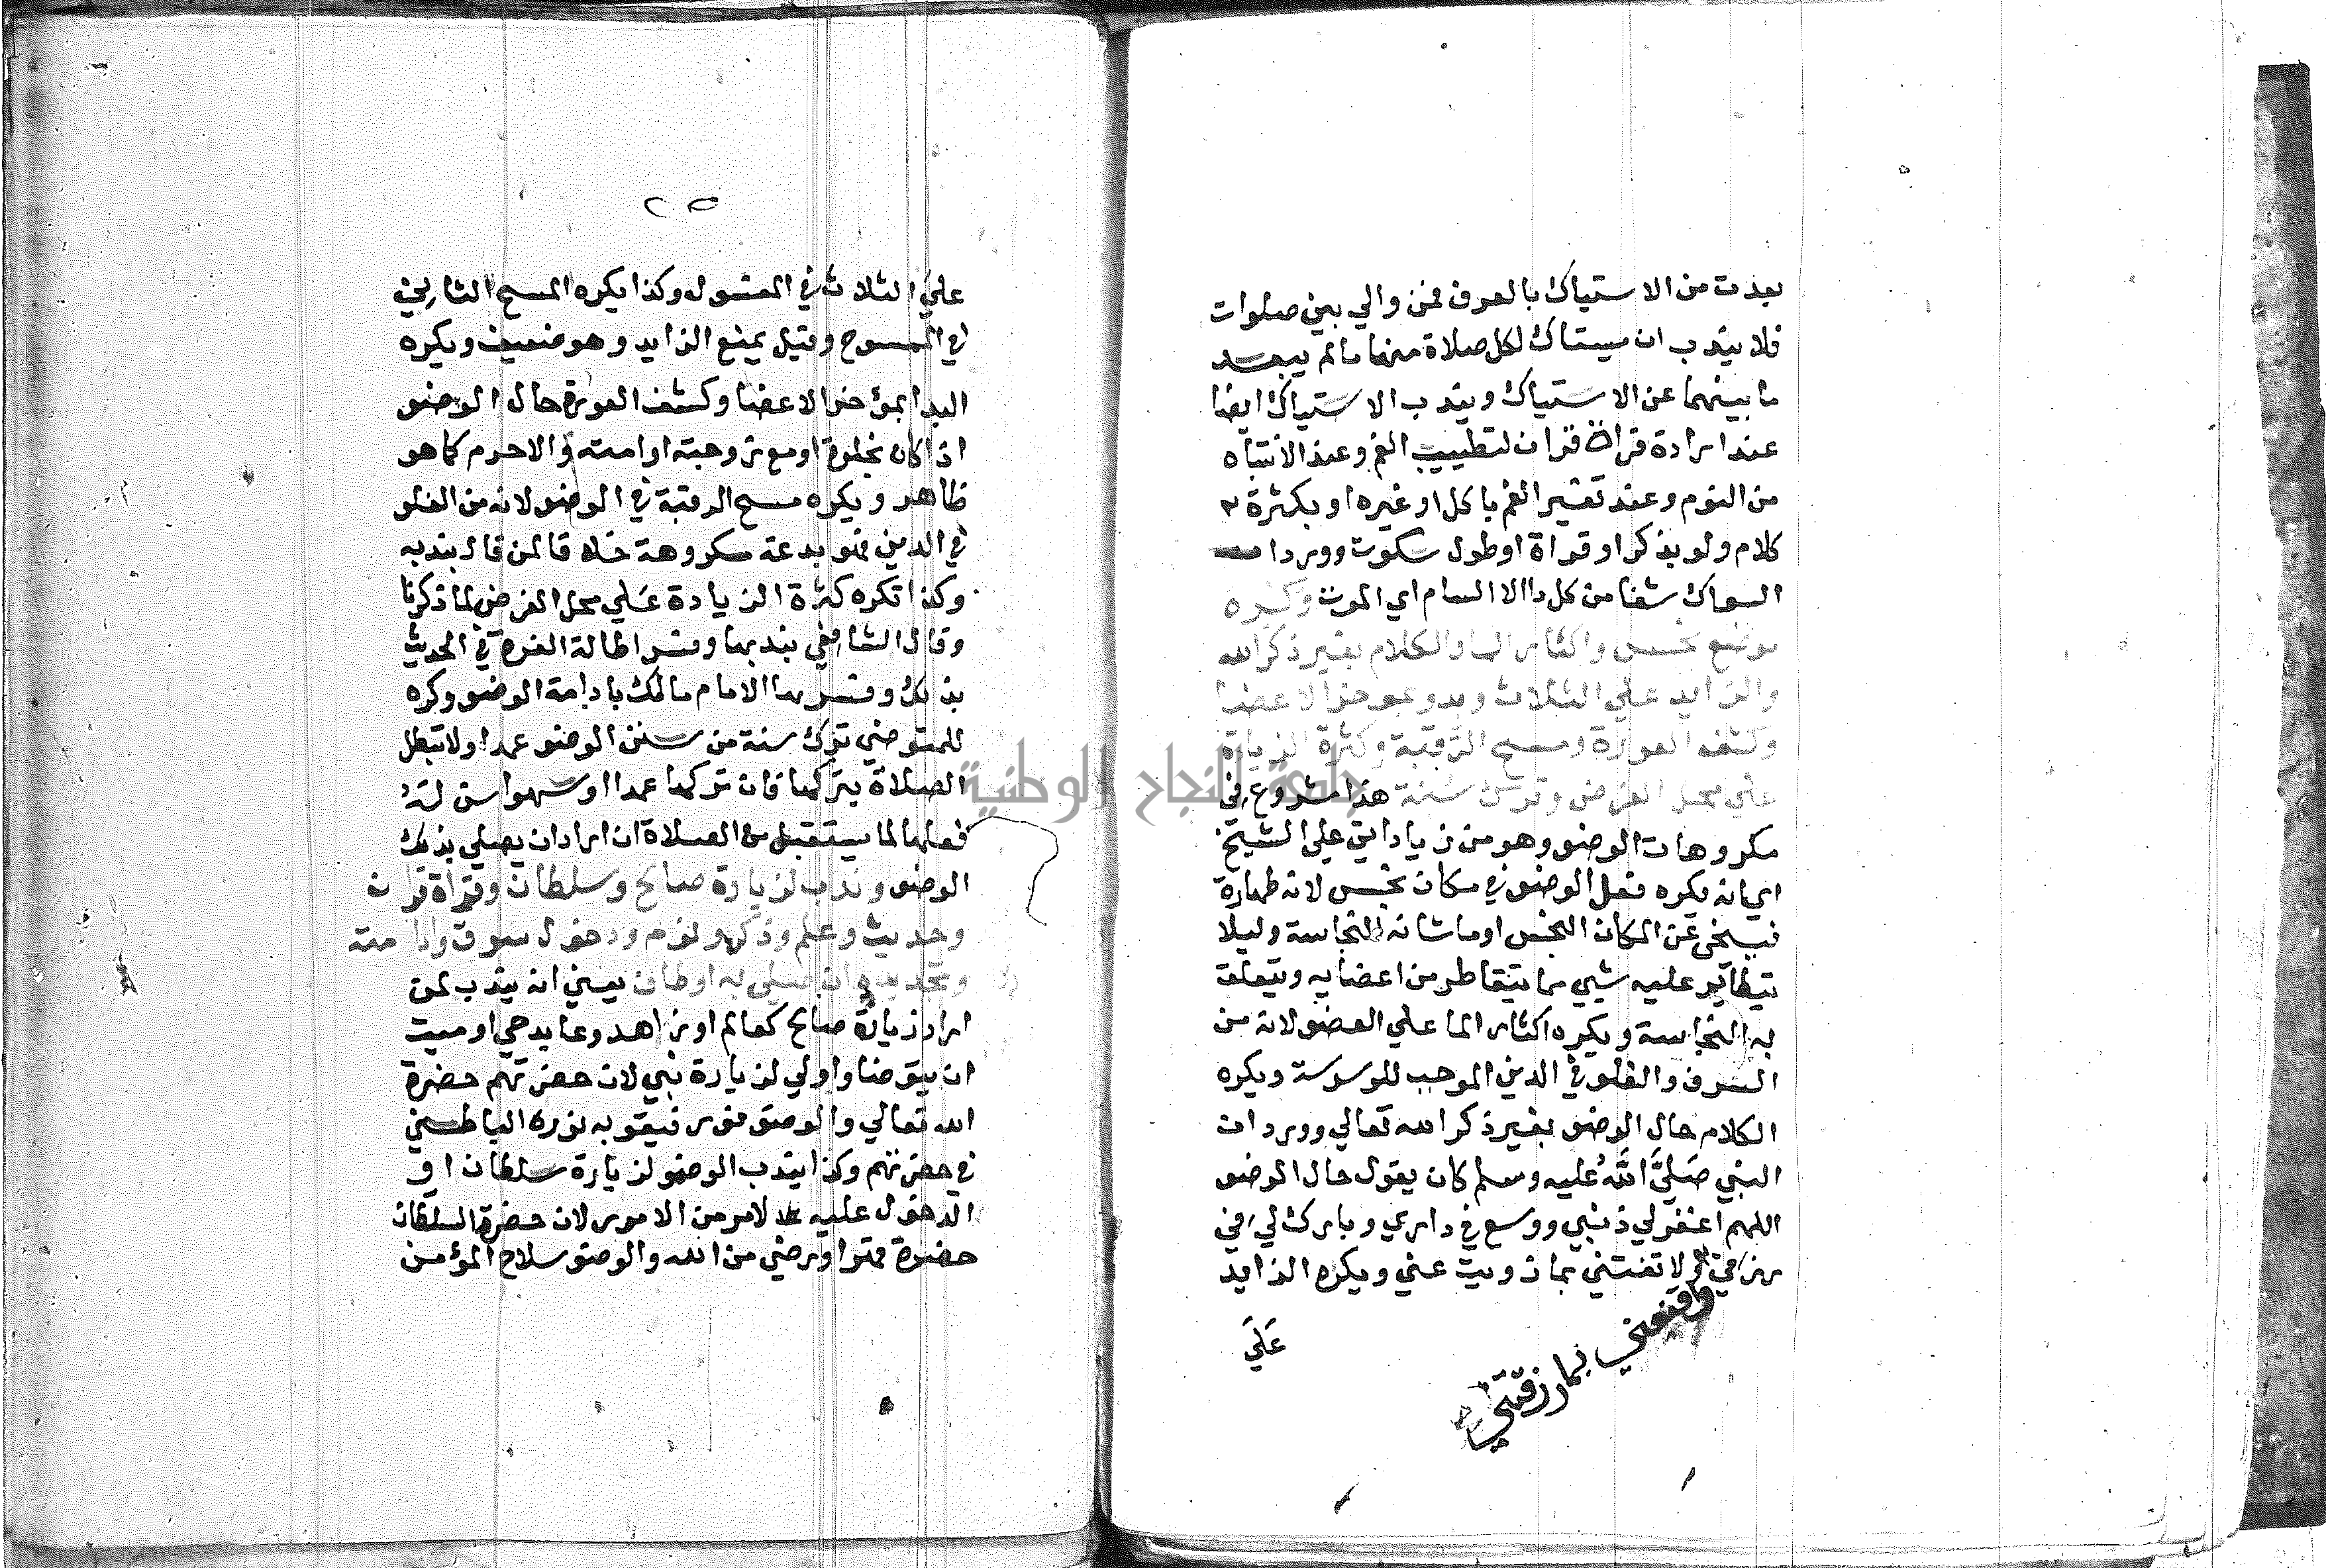 بعدت من الاستياك بالعرف فمن والي بين صلوات
فلا يندب ان يستاك لكل صلاة منها ما لم يبعد
ما بينهما عن الاستياك ويندب الاستياك ايضا
عند ارادة قراة قران لتطييب الفم وعند الانتباه
من النوم وعند تغير الفم باكل او غيره او بكثرة
كلام ولو بذكر او قراة او طول سكوت وورد ان
السواك شفا من كل دا الا السام اي الموت وكره
موضع نجس واكثار الما والكلام بغير ذكر الله
والزايد علي الثلاث وبدو بموخر الاعضا
وكشف العورة ومسح الرقبة وكثرة الزيادة
علي محل الفرض وترك سنة هذا مشروع في
مكروهات الوضو وهو من زياداتي علي الشيخ
اي انه يكره فعل الوضو في مكان نجس لانه طهارة
فيتنحي عن المكان النجس او ما شانه النجاسة وليلا
يتطاير عليه شيي مما يتقاطر من اعضايه ويتعلق
به النجاسة ويكره اكثار الما علي العضو لانه من
السرف والغلو في الدين الموجب للوسوسة ويكره
الكلام حال الوضو بغير ذكر الله تعالي وورد ان
النبي صَلَّي اللَّهُ عليه وسلم كان يقول حال الوضو
اللهم اغفر لي ذنبي ووسع في داري وبارك لي في
رزقي ولا تفتني بما زويت عني ويكره الزايد
وقنعني بما رزقتني
عَلَي
٢٥
علي الثلاث في المغسول وكذا يكره المسح الثاني
في الممسوح وقيل يمنع الزايد وهو ضعيف ويكره
البدا بموخر الاعضا وكشف العورة حال الوضو
اذا كان بخلوة او مع زوجته او امته والا حرم كما هو
ظاهر ويكره مسح الرقبة في الوضو لانه من الغلو
في الدين فهو بدعة مكروهة خلافا لمن قال بندبه
وكذا تكره كثرة الزيادة عَلي محل الفرض لما ذكرنا
وقال الشافعي بندبها وفسر اطالة الغرة في الحديث
بذلك وفسرها الامام مالك بادامة الوضو وكره
للمتوضي ترك سنة من سنن الوضو عمدا ولا تبطل
الصلاة بتركها فان تركها عمدا او سهوا سن له
فعلها لما يستقبل من الصلاة ان اراد ان يصلي بذلك
الوضو وندب لزيارة صالح وسلطان وقراة قران
وحديث وعلم وذكر ونوم ودخول سوق وادامته
وتجديده ان صلي به او طاف يعني انه يندب لمن
اراد زيارة صالح كعالم او زاهد وعابد حي او ميت
ان يتوضا واولي لزيارة نبي لان حضرتهم حضرة
الله تعالي والوضو نور فيقو به نوره الباطني
في حضرتهم وكذا يندب الوضو لزيارة سلطان او
الدخول عليه لامر من الامور لان حضرة السلطان
حضرة قهر او رضي من الله والوضو سلاح المؤمن
جامعة النجاح الوطنية